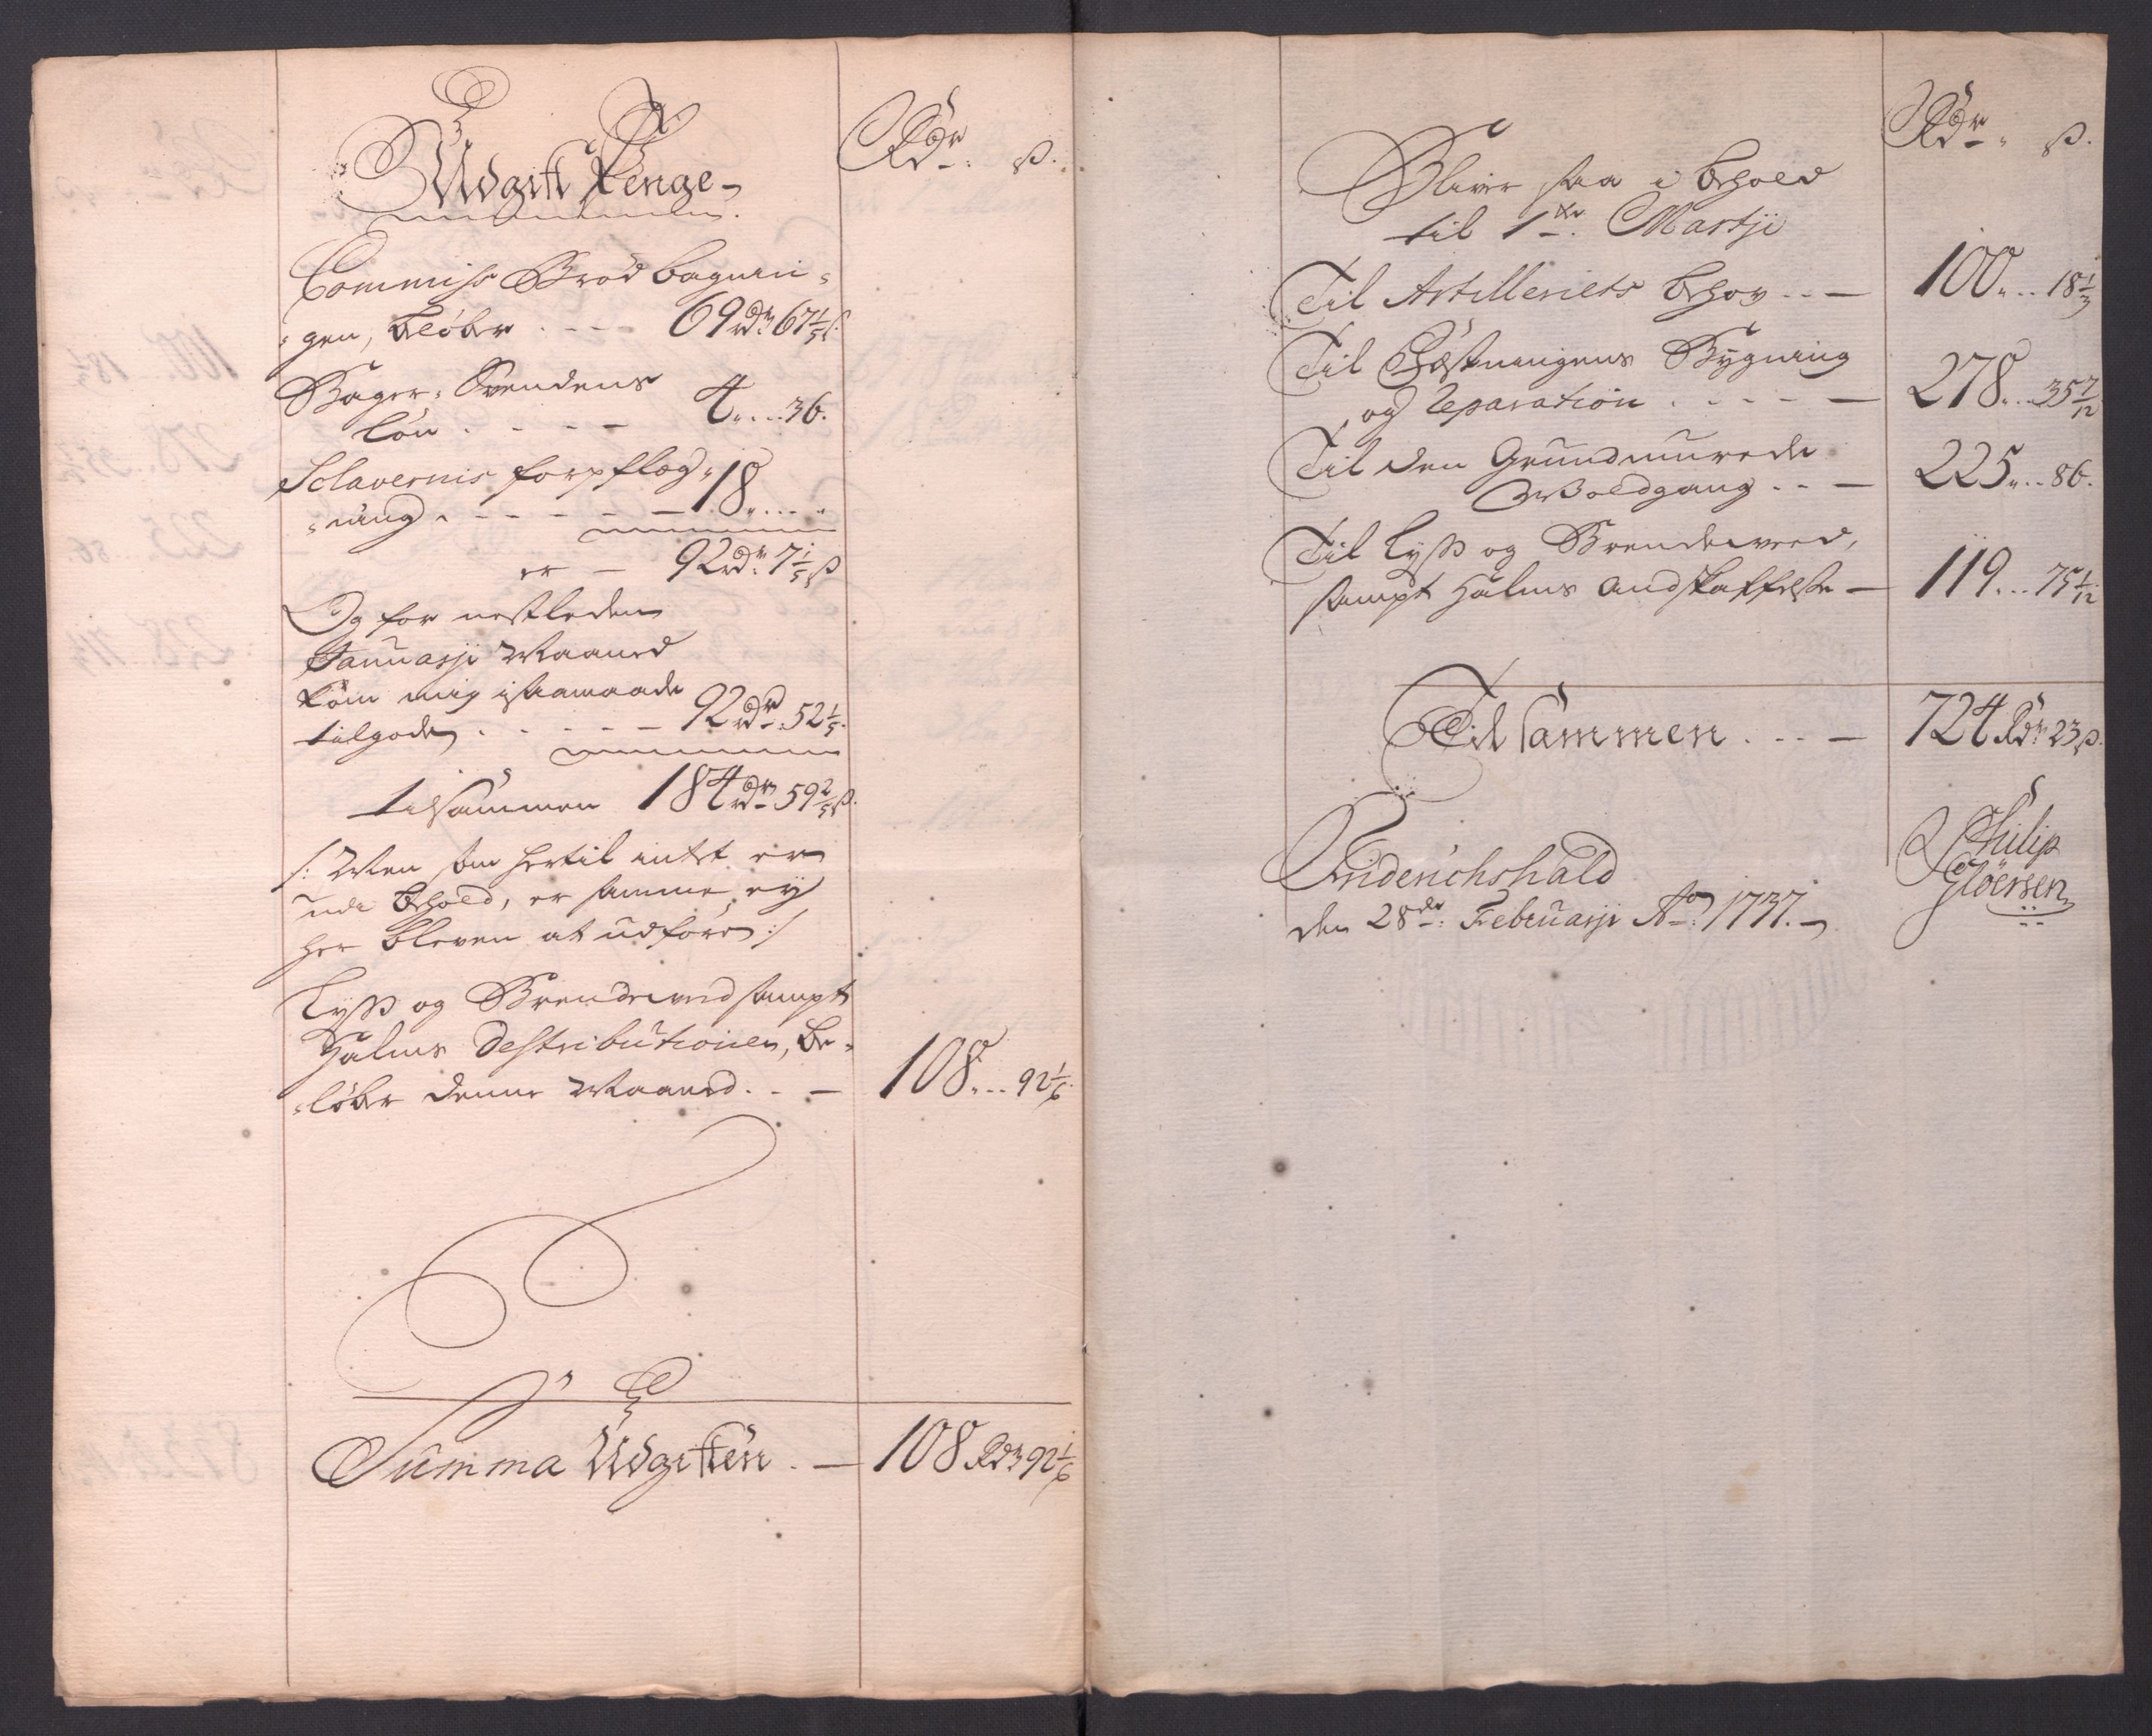 Udgift Penge
Rdr: ß.
Commiss Brød bagnin=
=gen, beløber . . . 69 rdr 67 1/5 ß.
Bager-Svendens
Løn . . . . 4 . . . 36.
Sclavernis forpflæg=
=ning . . . . . 18 . . . .
er — 92 rdr: 7 1/5 ß
Og for nestleden
Januarji Maaned
kom mig i saamaade
tilgode . . . . . 92 rdr: 52 1/5.
tilsammen 184 rdr: 59 2/5 ß.
/: Men som hertil intet er
udi behold, er samme ey
her bleven at udføre :/
Lyss og Brendeved sampt
Halms Destributionen, be=
=løber denne Maaned . . — 108 . . . 92 1/6.
Summa Udgiften . — 108 Rdr 92 1/6
Rdr: ß.
Bliver saa i behold
til 1te. Martji
Til Artilleriets behov . . — 100 . . . 18 1/3
Til Fæstningens Bygning
og Reparation . . . . — 278 . . . 35 7/12
Til den Grundmurede
Woldgang . . — 225 . . . 86.
Til Lyss og Brendeved,
sampt Halms Andskaffelse — 119 . . . 75 1/12
Til sammen . . . — 724 Rdr 23 ß.
Friderichshald
den 28de: Februarji Ao: 1737.
Philip
Gløersen